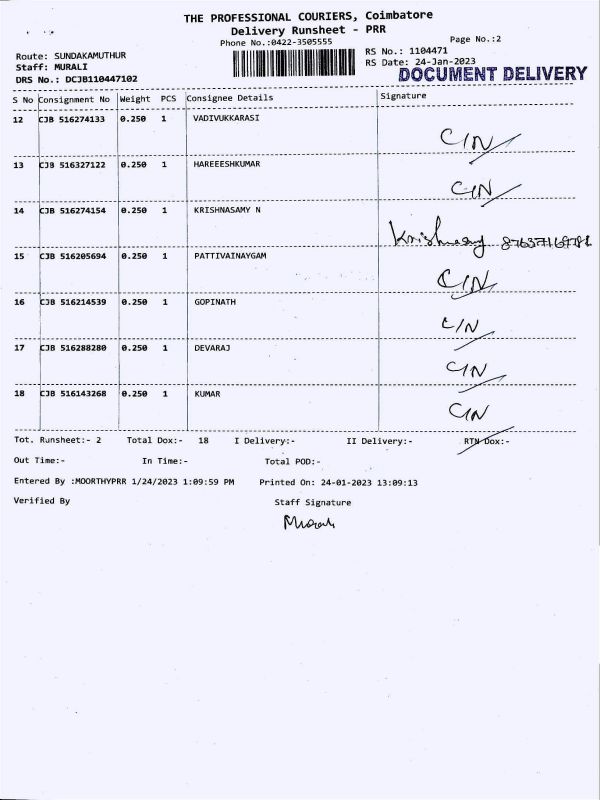 THE PROFESSIONAL COURIERS, Coimbatore
Delivery Runsheet - PRR
Phone No.:0422-3505555
Page No.:2
Route: SUNDAKAMUTHUR
RS No.: 1104471
Staff: MURALI
RS Date: 24-Jan-2023
DRS No.: DCJB110447102
DOCUMENT DELIVERY
S No Consignment No Weight PCS Consignee Details Signature
12 CJB 516274133 0.250 1 VADIVUKKARASI
C/N
13 CJB 516327122 0.250 1 HAREEESHKUMAR
C/N
14 CJB 516274154 0.250 1 KRISHNASAMY N
15 CJB 516205694 0.250 1 PATTIVAINAYGAM
C/N
16 CJB 516214539 0.250 1 GOPINATH
C/N
17 CJB 516288280 0.250 1 DEVARAJ
C/N
18 CJB 516143268 0.250 1 KUMAR
C/N
Tot. Runsheet:- 2 Total Dox:- 18 I Delivery:- II Delivery:- RTN Dox:-
Out Time:- In Time:- Total POD:-
Entered By :MOORTHYPRR 1/24/2023 1:09:59 PM Printed On: 24-01-2023 13:09:13
Verified By Staff Signature